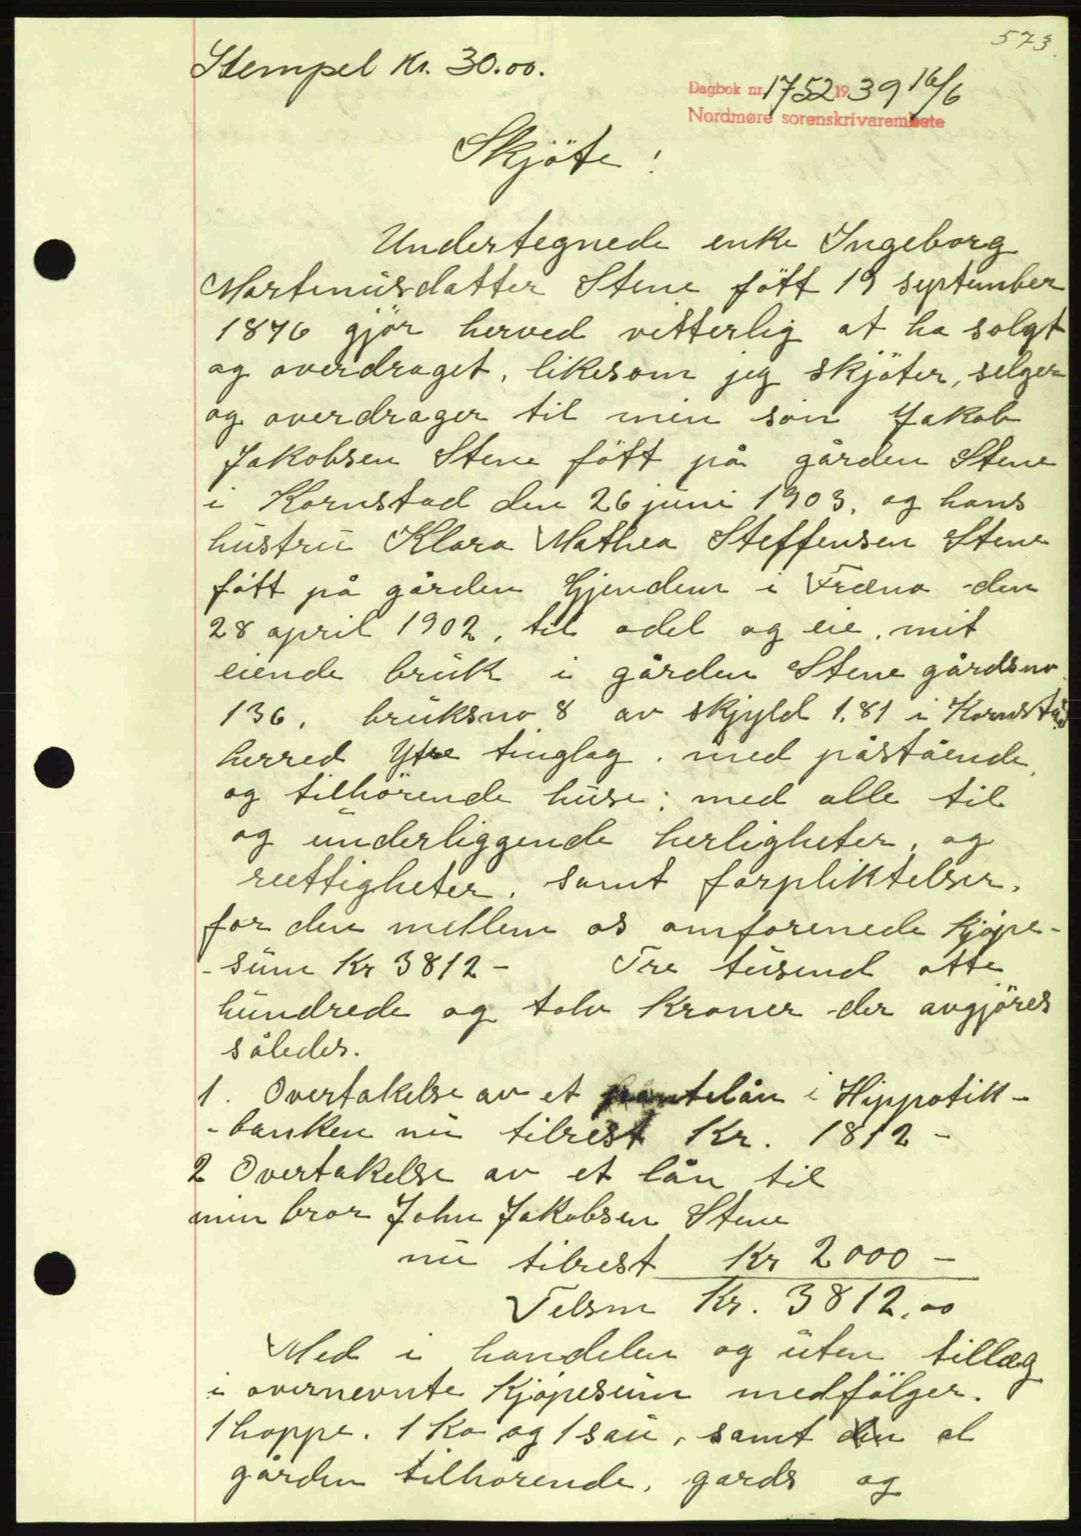 573.
Stempel Kr. 30.00.
Dagbok nr. 1752 1939 16/6
Nordmøre sorenskrivarembete
Skjöte!
Undertegnede enke Ingeborg
Martinusdatter Stene fött 19 september
1876 gjör herved vitterlig at ha solgt
og overdraget, likesom jeg skjöter, selger
og overdrager til min sön Jakob
Jakobsen Stene fött på gården Stene
i Kornstad den 26 juni 1903, og hans
hustru Klara Mathea Steffensen Stene
fött på gården Gjendem i Fræna den
28 april 1902, til odel og eie, mit
eiende bruk i gården Stene gårdsno
136, bruksno 8 av skjyld 1.81 i Kornstad
herred Ytre tinglag. med påstående
og tilhörende huse; med alle til
og underliggende herligheter, og
rettigheter, samt forpliktelser,
for den mellem os omforenede kjöpe-
-sum Kr 3812- Tre tusend otte
hundrede og tolv kroner der avgjöres
således.
1. Overtakelse av et pantelån i Hippotik-
-banken nu tilrest Kr. 1812-
2 Overtakelse av et lån til
min bror John Jakobsen Stene
nu tilrest Kr 2000-
Tilsm Kr. 3812.00
Med i handelen og uten tillæg
i overnevnte kjöpesum medfölger.
1 hoppe. 1 Ko og 1 sau, samt al
gården tilhörende, gards og